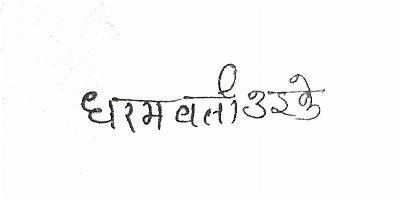 धरमवती उइके